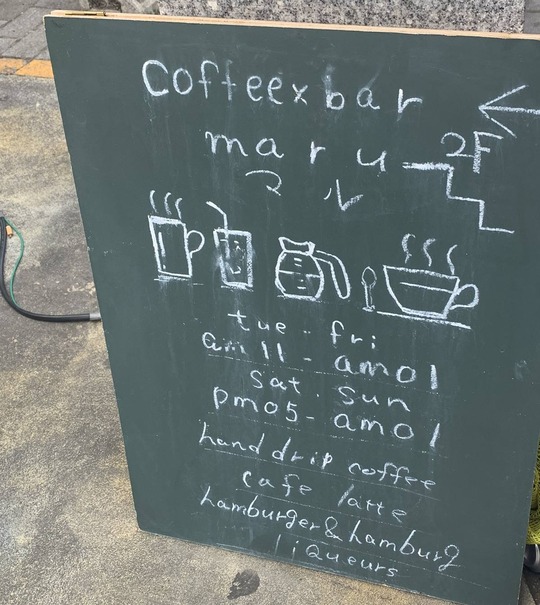 coffee×bar
maru 2F
マル
tue - fri
am11 - am01
sat. sun
pm05 - am01
hand drip coffee
cafe latte
hamburger&hamburg
liqueurs